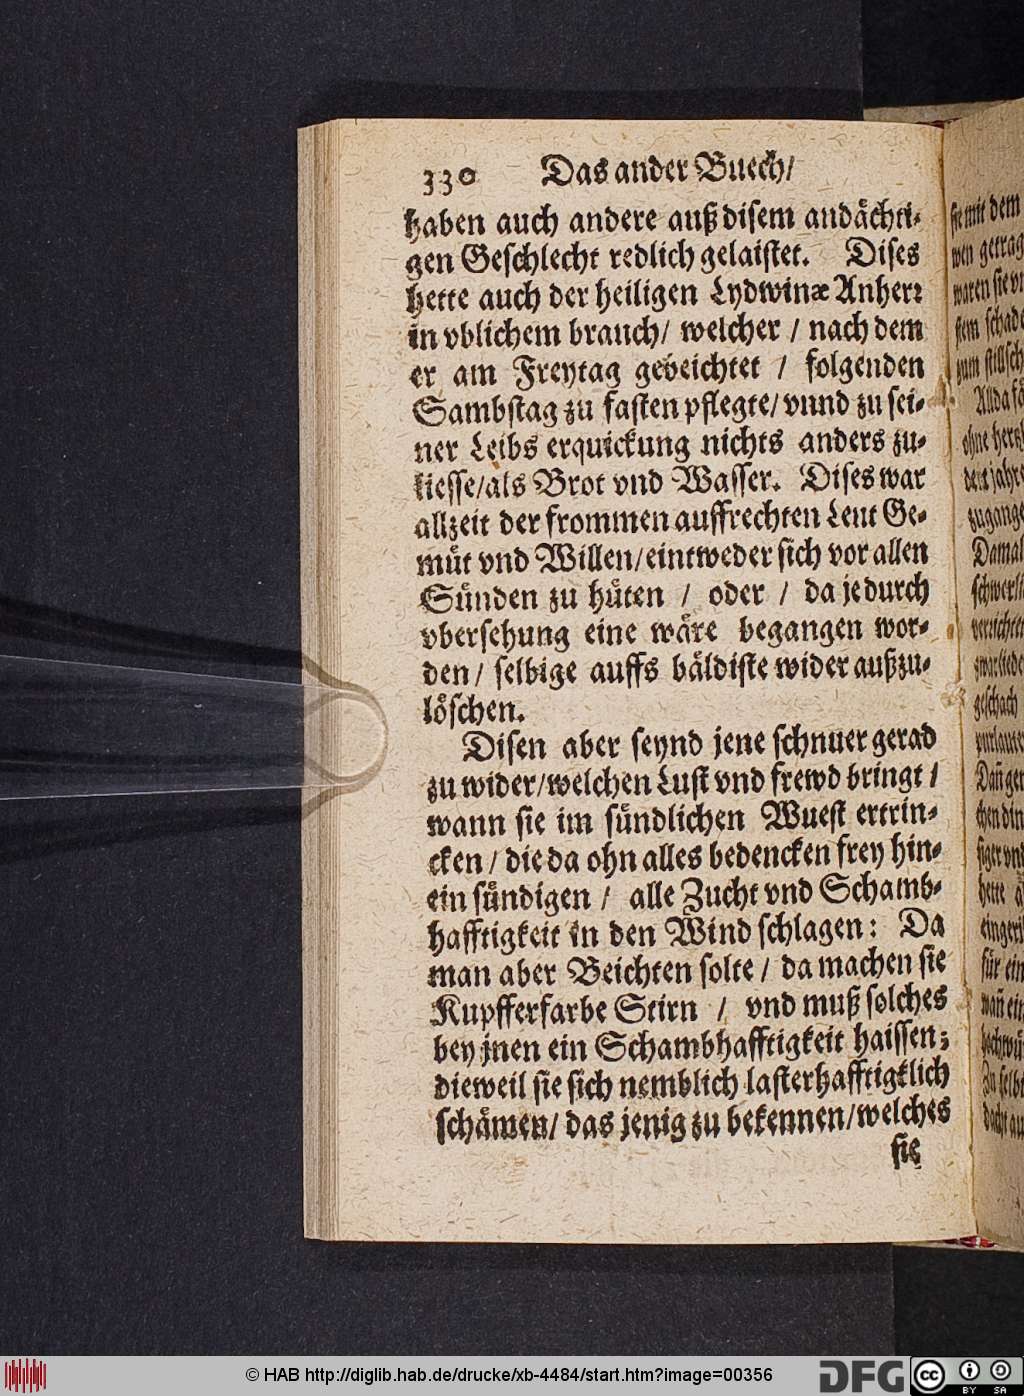 330 Das ander Buech/
haben auch andere auß disem andächti-
gen Geschlecht redlich gelaistet. Dises
hette auch der heiligen Lydwinæ Anherr
in vblichem brauch/ welcher / nach dem
er am Freytag gebeichtet / folgenden
Sambstag zu fasten pflegte/ vnnd zu sei-
ner Leibs erquickung nichts anders zu-
liesse/als Brot vnd Wasser. Dises war
allzeit der frommen auffrechten Leut Ge-
müt vnd Willen/eintweder sich vor allen
Sünden zu hüten / oder / da je durch
vbersehung eine wäre begangen wor-
den/ selbige auffs bäldiste wider außzu-
löschen.
Disen aber seynd jene schnuer gerad
zu wider/welchen Lust vnd frewd bringt /
wann sie im sündlichen Wuest ertrin-
cken / die da ohn alles bedencken frey hin-
ein sündigen / alle Zucht vnd Schamb-
hafftigkeit in den Wind schlagen: Da
man aber Beichten solte / da machen sie
Kupfferfarbe Stirn / vnd muß solches
bey jnen ein Schambhafftigkeit haissen;
dieweil sie sich nemblich lasterhafftigklich
schämen/ das jenig zu bekennen/welches
sie
sie mit dem
wen getrag
waren sie vn
stem schade
zum stillsch
Allda
ohne
jahre
zugange
Damal
schwerli
geschach
Dañ ger
chen din
siger vnd
hette
für ein
mañ ein
hochwü
Zu selb
© HAB http://diglib.hab.de/drucke/xb-4484/start.htm?image=00356
DFG
cc
BY SA